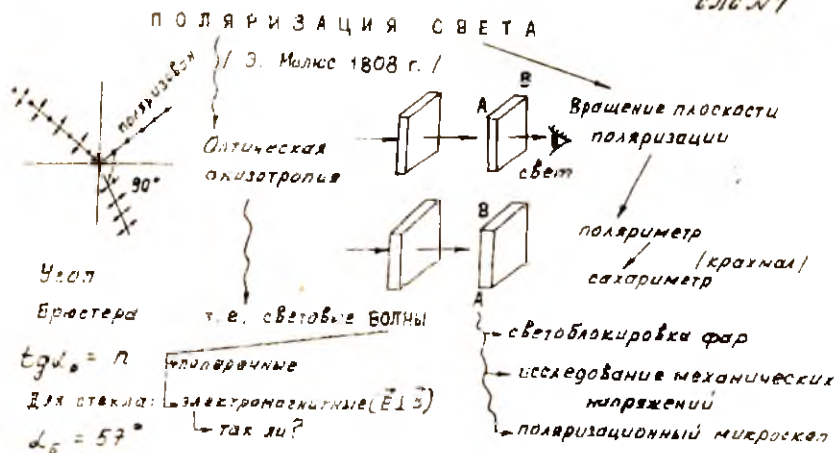 ПОЛЯРИЗАЦИЯ СВЕТА
/ Э. Малюс 1808 г. /
поляризован
90°
Оптическая
анизотропия
A
B
свет
Вращение плоскости
поляризации
B
A
поляриметр
/крахмал/
сахариметр
Угол
Брюстера
tgα₀ = n
Для стекла:
α_Б = 57°
т.е. световые ВОЛНЫ
поперечные
электромагнитные (E⊥B)
так ли?
светоблокировка фар
исследование механических
напряжений
поляризационный микроскоп